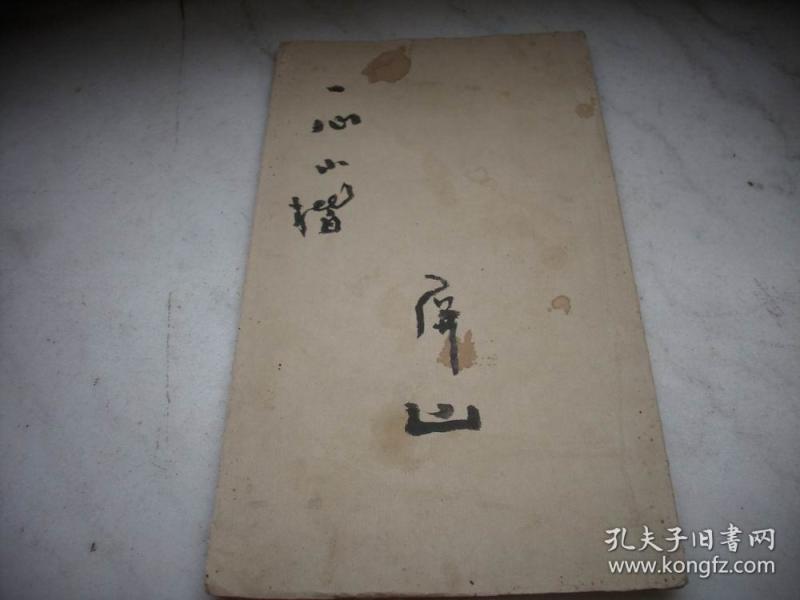 一心小楷
屏山
孔夫子旧書网
www.kongfz.com